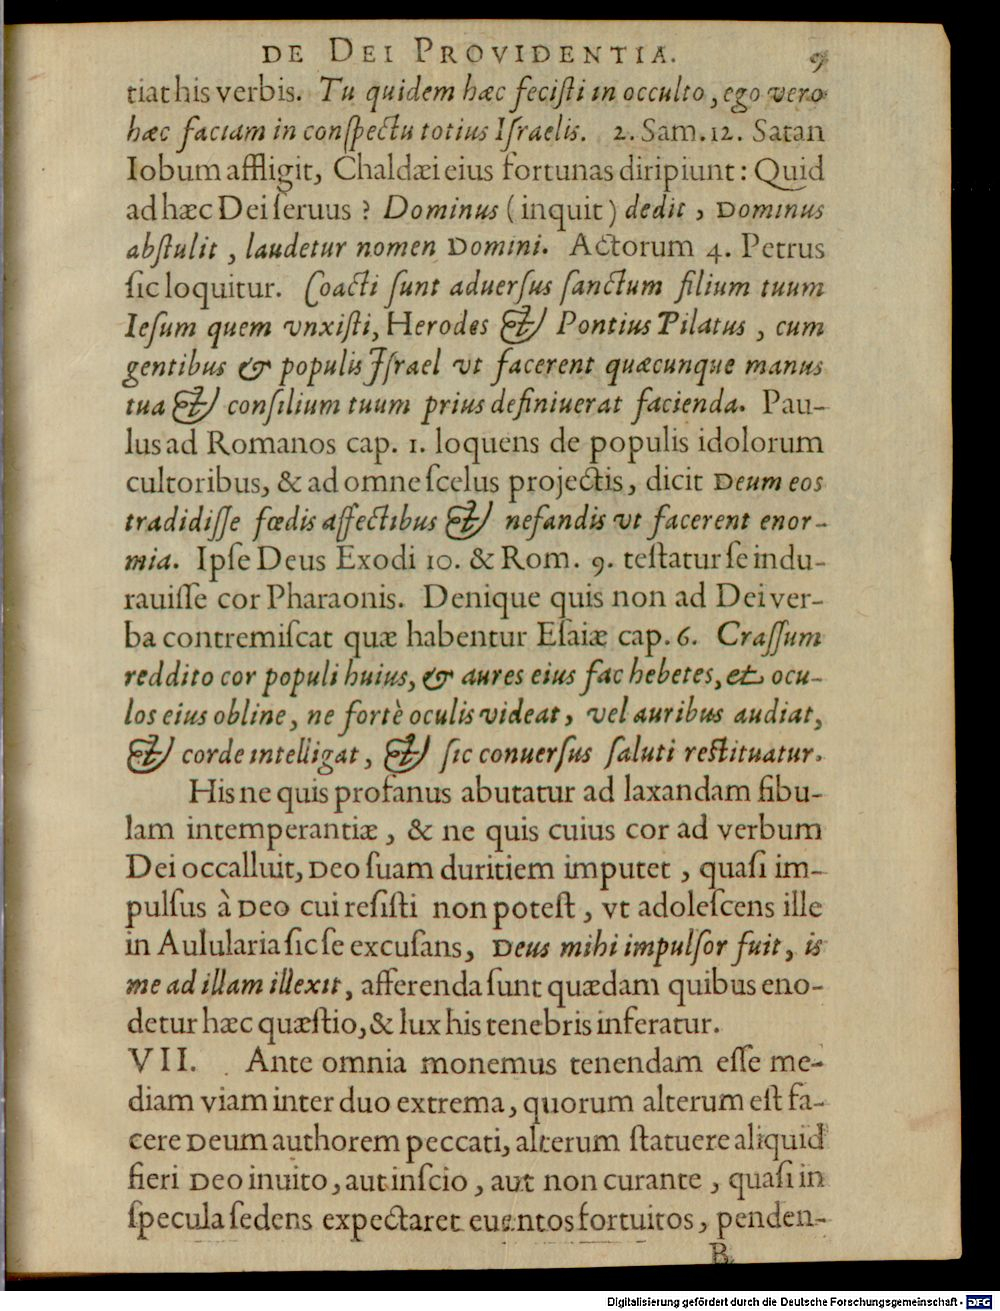 DE DEI PROVIDENTIA. 9
tiat his verbis. Tu quidem hæc feciſti in occulto, ego vero
hæc faciam in conſpectu totius Iſraelis. 2. Sam. 12. Satan
Iobum affligit, Chaldæi eius fortunas diripiunt: Quid
ad hæc Dei ſeruus? Dominus (inquit) dedit, Dominus
abſtulit, laudetur nomen Domini. Actorum 4. Petrus
ſic loquitur. Coacti ſunt aduerſus ſanctum filium tuum
Ieſum quem vnxiſti, Herodes & Pontius Pilatus, cum
gentibus & populis Iſrael vt facerent quæcunque manus
tua & conſilium tuum prius definiuerat facienda. Pau-
lus ad Romanos cap. 1. loquens de populis idolorum
cultoribus, & ad omne ſcelus projectis, dicit Deum eos
tradidiſſe fœdis affectibus & nefandis vt facerent enor-
mia. Ipſe Deus Exodi 10. & Rom. 9. teſtatur ſe indu-
rauiſſe cor Pharaonis. Denique quis non ad Dei ver-
ba contremiſcat quæ habentur Eſaiæ cap. 6. Craſſum
reddito cor populi huius, & aures eius fac hebetes, et ocu-
los eius obline, ne fortè oculis videat, vel auribus audiat,
& corde intelligat, & ſic conuerſus ſaluti reſtituatur.
His ne quis profanus abutatur ad laxandam fibu-
lam intemperantiæ, & ne quis cuius cor ad verbum
Dei occalluit, Deo ſuam duritiem imputet, quaſi im-
pulſus à Deo cui reſiſti non poteſt, vt adoleſcens ille
in Aulularia ſic ſe excuſans, Deus mihi impulſor fuit, is
me ad illam illexit, afferenda ſunt quædam quibus eno-
detur hæc quæſtio, & lux his tenebris inferatur.
VII. Ante omnia monemus tenendam eſſe me-
diam viam inter duo extrema, quorum alterum eſt fa-
cere Deum authorem peccati, alterum ſtatuere aliquid
fieri Deo inuito, aut inſcio, aut non curante, quaſi in
ſpecula ſedens expectaret euentos fortuitos, penden-
B
Digitalisierung gefördert durch die Deutsche Forschungsgemeinschaft - DFG